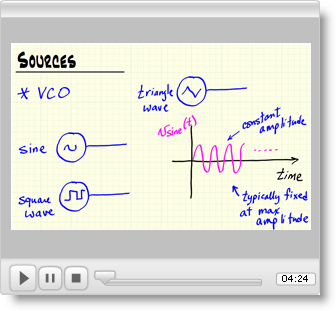 SOURCES
* VCO
triangle
wave
sine
square
wave
Vsine(t)
constant
amplitude
time
typically fixed
at max
amplitude
04:24